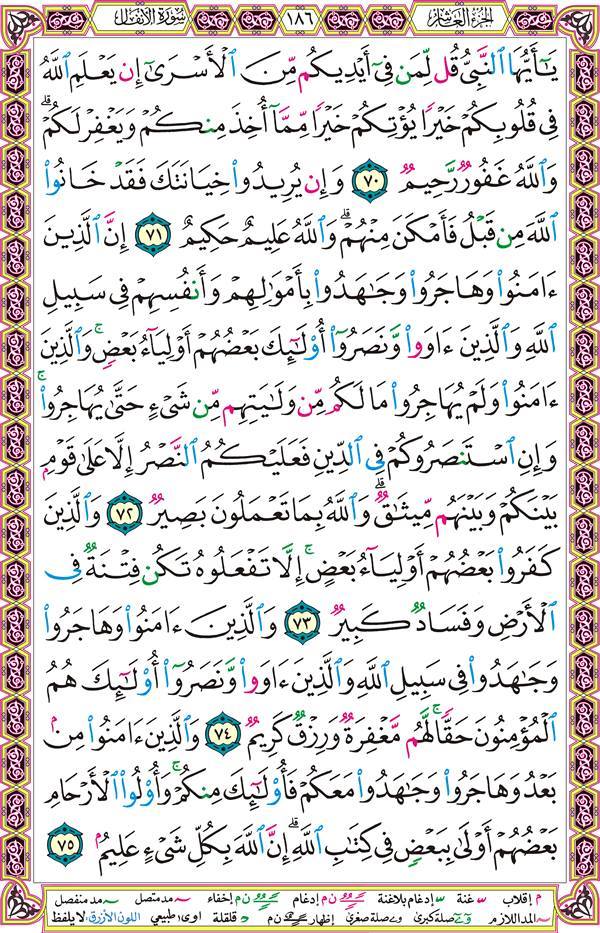 الجزء العاشر
١٨٦
سورة الأنفال
يَـٰٓأَيُّهَا ٱلنَّبِىُّ قُل لِّمَن فِىٓ أَيْدِيكُم مِّنَ ٱلْأَسْرَىٰٓ إِن يَعْلَمِ ٱللَّهُ
فِى قُلُوبِكُمْ خَيْرًا يُؤْتِكُمْ خَيْرًا مِّمَّآ أُخِذَ مِنكُمْ وَيَغْفِرْ لَكُمْ ۗ
وَٱللَّهُ غَفُورٌ رَّحِيمٌ ٧٠ وَإِن يُرِيدُوا۟ خِيَانَتَكَ فَقَدْ خَانُوا۟
ٱللَّهَ مِن قَبْلُ فَأَمْكَنَ مِنْهُمْ ۗ وَٱللَّهُ عَلِيمٌ حَكِيمٌ ٧١ إِنَّ ٱلَّذِينَ
ءَامَنُوا۟ وَهَاجَرُوا۟ وَجَـٰهَدُوا۟ بِأَمْوَٰلِهِمْ وَأَنفُسِهِمْ فِى سَبِيلِ
ٱللَّهِ وَٱلَّذِينَ ءَاوَوا۟ وَّنَصَرُوٓا۟ أُو۟لَـٰٓئِكَ بَعْضُهُمْ أَوْلِيَآءُ بَعْضٍ ۚ وَٱلَّذِينَ
ءَامَنُوا۟ وَلَمْ يُهَاجِرُوا۟ مَا لَكُم مِّن وَلَـٰيَتِهِم مِّن شَىْءٍ حَتَّىٰ يُهَاجِرُوا۟ ۚ
وَإِنِ ٱسْتَنصَرُوكُمْ فِى ٱلدِّينِ فَعَلَيْكُمُ ٱلنَّصْرُ إِلَّا عَلَىٰ قَوْمٍۭ
بَيْنَكُمْ وَبَيْنَهُم مِّيثَـٰقٌ ۗ وَٱللَّهُ بِمَا تَعْمَلُونَ بَصِيرٌ ٧٢ وَٱلَّذِينَ
كَفَرُوا۟ بَعْضُهُمْ أَوْلِيَآءُ بَعْضٍ ۚ إِلَّا تَفْعَلُوهُ تَكُن فِتْنَةٌ فِى
ٱلْأَرْضِ وَفَسَادٌ كَبِيرٌ ٧٣ وَٱلَّذِينَ ءَامَنُوا۟ وَهَاجَرُوا۟
وَجَـٰهَدُوا۟ فِى سَبِيلِ ٱللَّهِ وَٱلَّذِينَ ءَاوَوا۟ وَّنَصَرُوٓا۟ أُو۟لَـٰٓئِكَ هُمُ
ٱلْمُؤْمِنُونَ حَقًّا ۚ لَّهُم مَّغْفِرَةٌ وَرِزْقٌ كَرِيمٌ ٧٤ وَٱلَّذِينَ ءَامَنُوا۟ مِنۢ
بَعْدُ وَهَاجَرُوا۟ وَجَـٰهَدُوا۟ مَعَكُمْ فَأُو۟لَـٰٓئِكَ مِنكُمْ ۚ وَأُو۟لُوا۟ ٱلْأَرْحَامِ
بَعْضُهُمْ أَوْلَىٰ بِبَعْضٍ فِى كِتَـٰبِ ٱللَّهِ ۗ إِنَّ ٱللَّهَ بِكُلِّ شَىْءٍ عَلِيمٌۢ ٧٥
م إقلاب غنة إدغام بلاغنة ن م إدغام ن م إخفاء مد متصل مد منفصل
المد اللازم صلة كبرى صلة صغرى إظهار ن م قلقلة اوى طبيعي اللون الأزرق: لا يلفظ